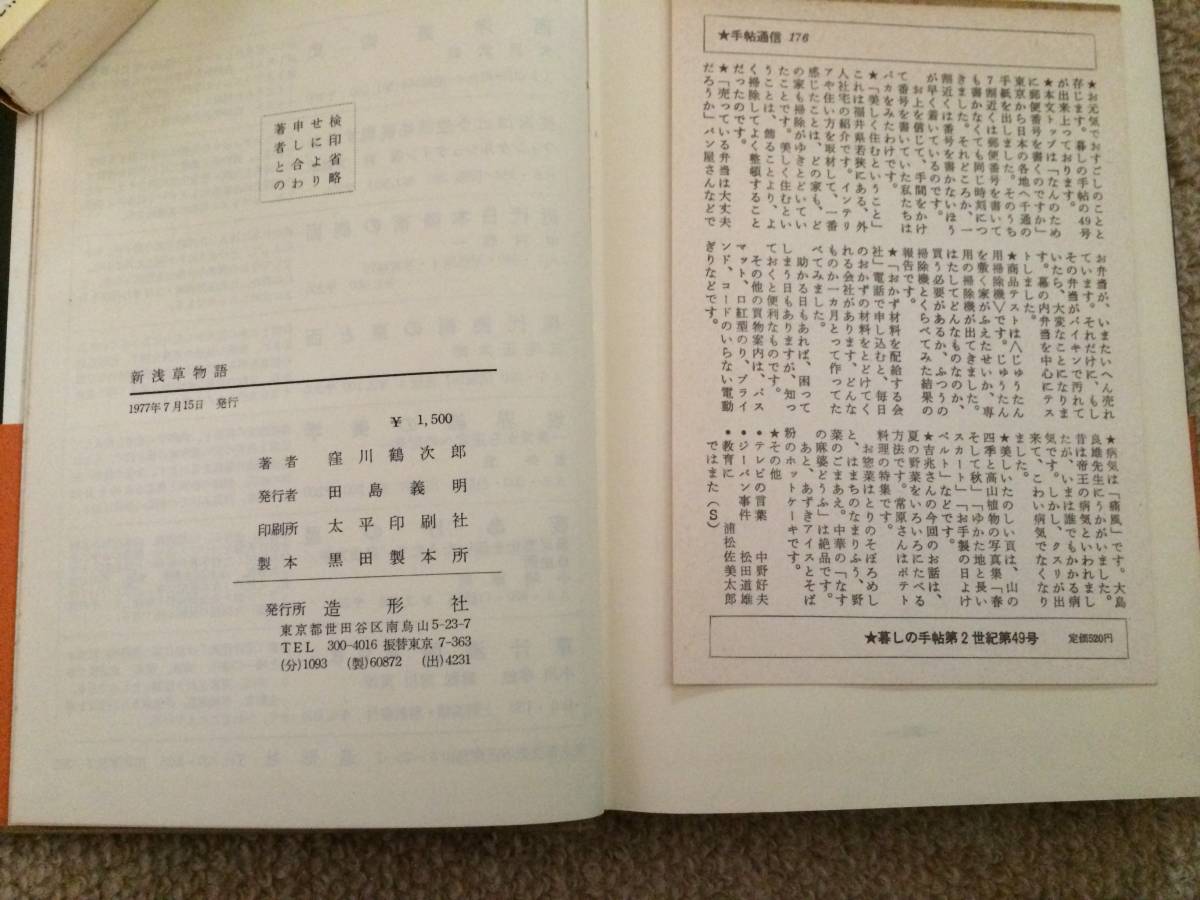 検印省略
せにより
申し合わ
著者との
新浅草物語
1977年7月15日 発行
¥ 1,500
著者 窪川鶴次郎
発行者 田島義明
印刷所 太平印刷社
製本 黒田製本所
発行所 造形社
東京都世田谷区南烏山5-23-7
TEL 300-4016 振替東京 7-363
(分)1093 (製)60872 (出)4231
★手帖通信 176
★お元気でおすごしのことと
存じます。暮しの手帖の49号
が出来上っております。
★本文トップは「なんのため
に郵便番号を書くのですか」
東京から日本の各地へ千通の
手紙を出しました。そのうち
7割近くは郵便番号を書いて
も書かなくても同じ時刻につ
きました。それどころか、一
割近くは番号を書かないほう
が早く着いているのです。
お上を信じて、手間をかけ
て番号を書いていた私たちは
バカをみたわけです。
★「美しく住むということ」
これは福井県若狭にある、外
人社宅の紹介です。インテリ
アや住い方を取材して、一番
感じたことは、どの家も、ど
の家も掃除がゆきとどいてい
たことです。美しく住むとい
うことは、飾ることより、よ
く掃除してよく整頓すること
だったのです。
★「売っている弁当は大丈夫
だろうか」パン屋さんなどで
お弁当が、いまたいへん売れ
ています。それだけに、もし
その弁当がバイキンで汚れて
いたら、大変なことになりま
す。幕の内弁当を中心にテス
トしました。
★商品テストは〈じゅうたん
用掃除機〉です。じゅうたん
を敷く家がふえたせいか、専
用の掃除機が出てきました。
はたしてどんなものなのか、
買う必要があるか、ふつうの
掃除機とくらべてみた結果の
報告です。
★「おかず材料を配給する会
社」電話で申し込むと、毎日
のおかずの材料をとどけてく
れる会社があります。どんな
ものか一カ月とって作ってた
べてみました。
助かる日もあれば、困って
しまう日もありますが、知っ
ておくと便利なものです。
その他の買物案内は、バス
マット、口紅型のり、ブライ
ンド、コードのいらない電動
ぎりなどです。
★病気は「痛風」です。大島
良雄先生にうかがいました。
昔は帝王の病気といわれまし
たが、いまは誰でもかかる病
気です。しかし、クスリが出
来て、こわい病気でなくなり
ました。
★美しいたのしい頁は、山の
四季と高山植物の写真集「春
そして秋」「ゆかた地と長い
スカート」「お手製の日よけ
ベルト」などです。
★吉兆さんの今回のお話は、
夏の野菜をいろいろにたべる
方法です。常原さんはポテト
料理の特集です。
お惣菜はとりのそぼろめし
と、はまちのなまりふう、野
菜のごまあえ。中華の「なす
の麻婆どうふ」は絶品です。
あと、あずきアイスとそば
粉のホットケーキです。
★その他
•テレビの言葉 中野好夫
•ジーパン事件 松田道雄
•教育に 浦松佐美太郎
ではまた(S)
★暮しの手帖第2世紀第49号 定価520円